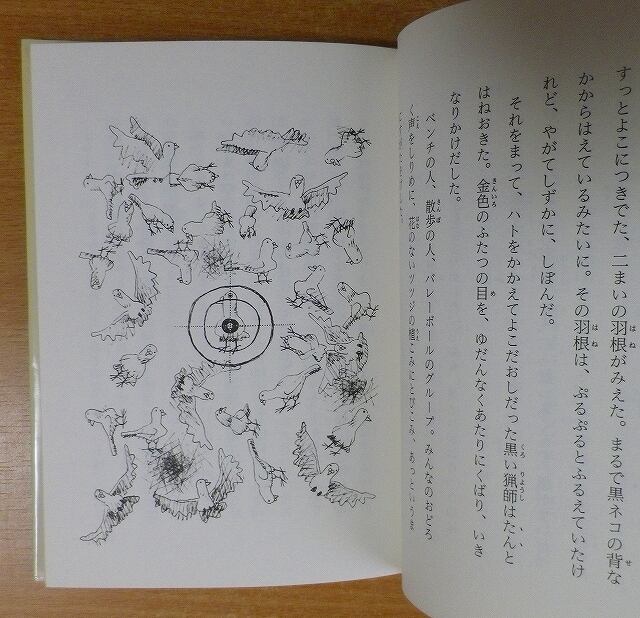 すっとよこにつきでた、二まいの羽根がみえた。まるで黒ネコの背な
かからはえているみたいに。その羽根は、ぷるぷるとふるえていたけ
れど、やがてしずかに、しぼんだ。
それをまって、ハトをかかえてよこだおしだった黒い猟師はたんと
はねおきた。金色のふたつの目を、ゆだんなくあたりにくばり、いき
なりかけだした。
ベンチの人、散歩の人、バレーボールのグループ。みんなのおどろ
く声をしりめに、花のないツツジの植こみにとびこみ、あっというま